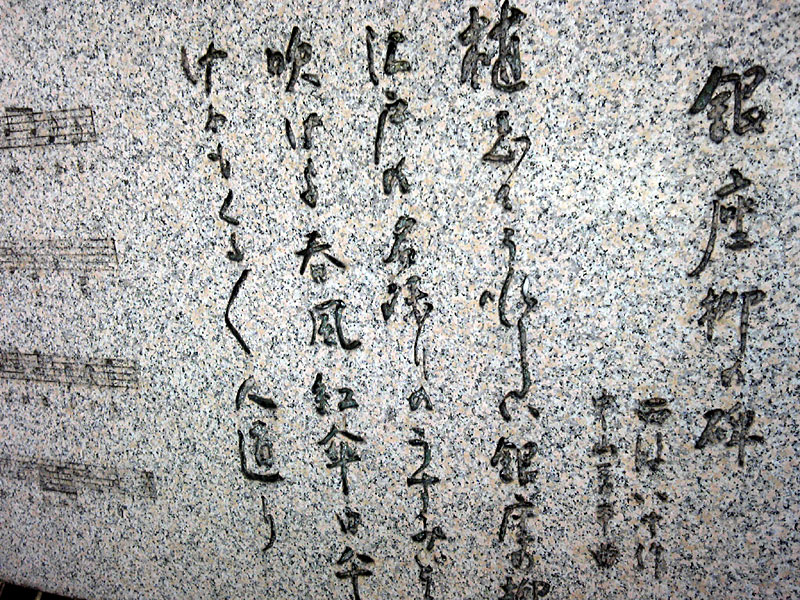 銀座柳の碑
西條八十作
中山晋平曲
植ゑてうれしい銀座の柳
江戸の名残りのうすみど
吹けよ春風紅傘日傘
けふもくる〱人通り